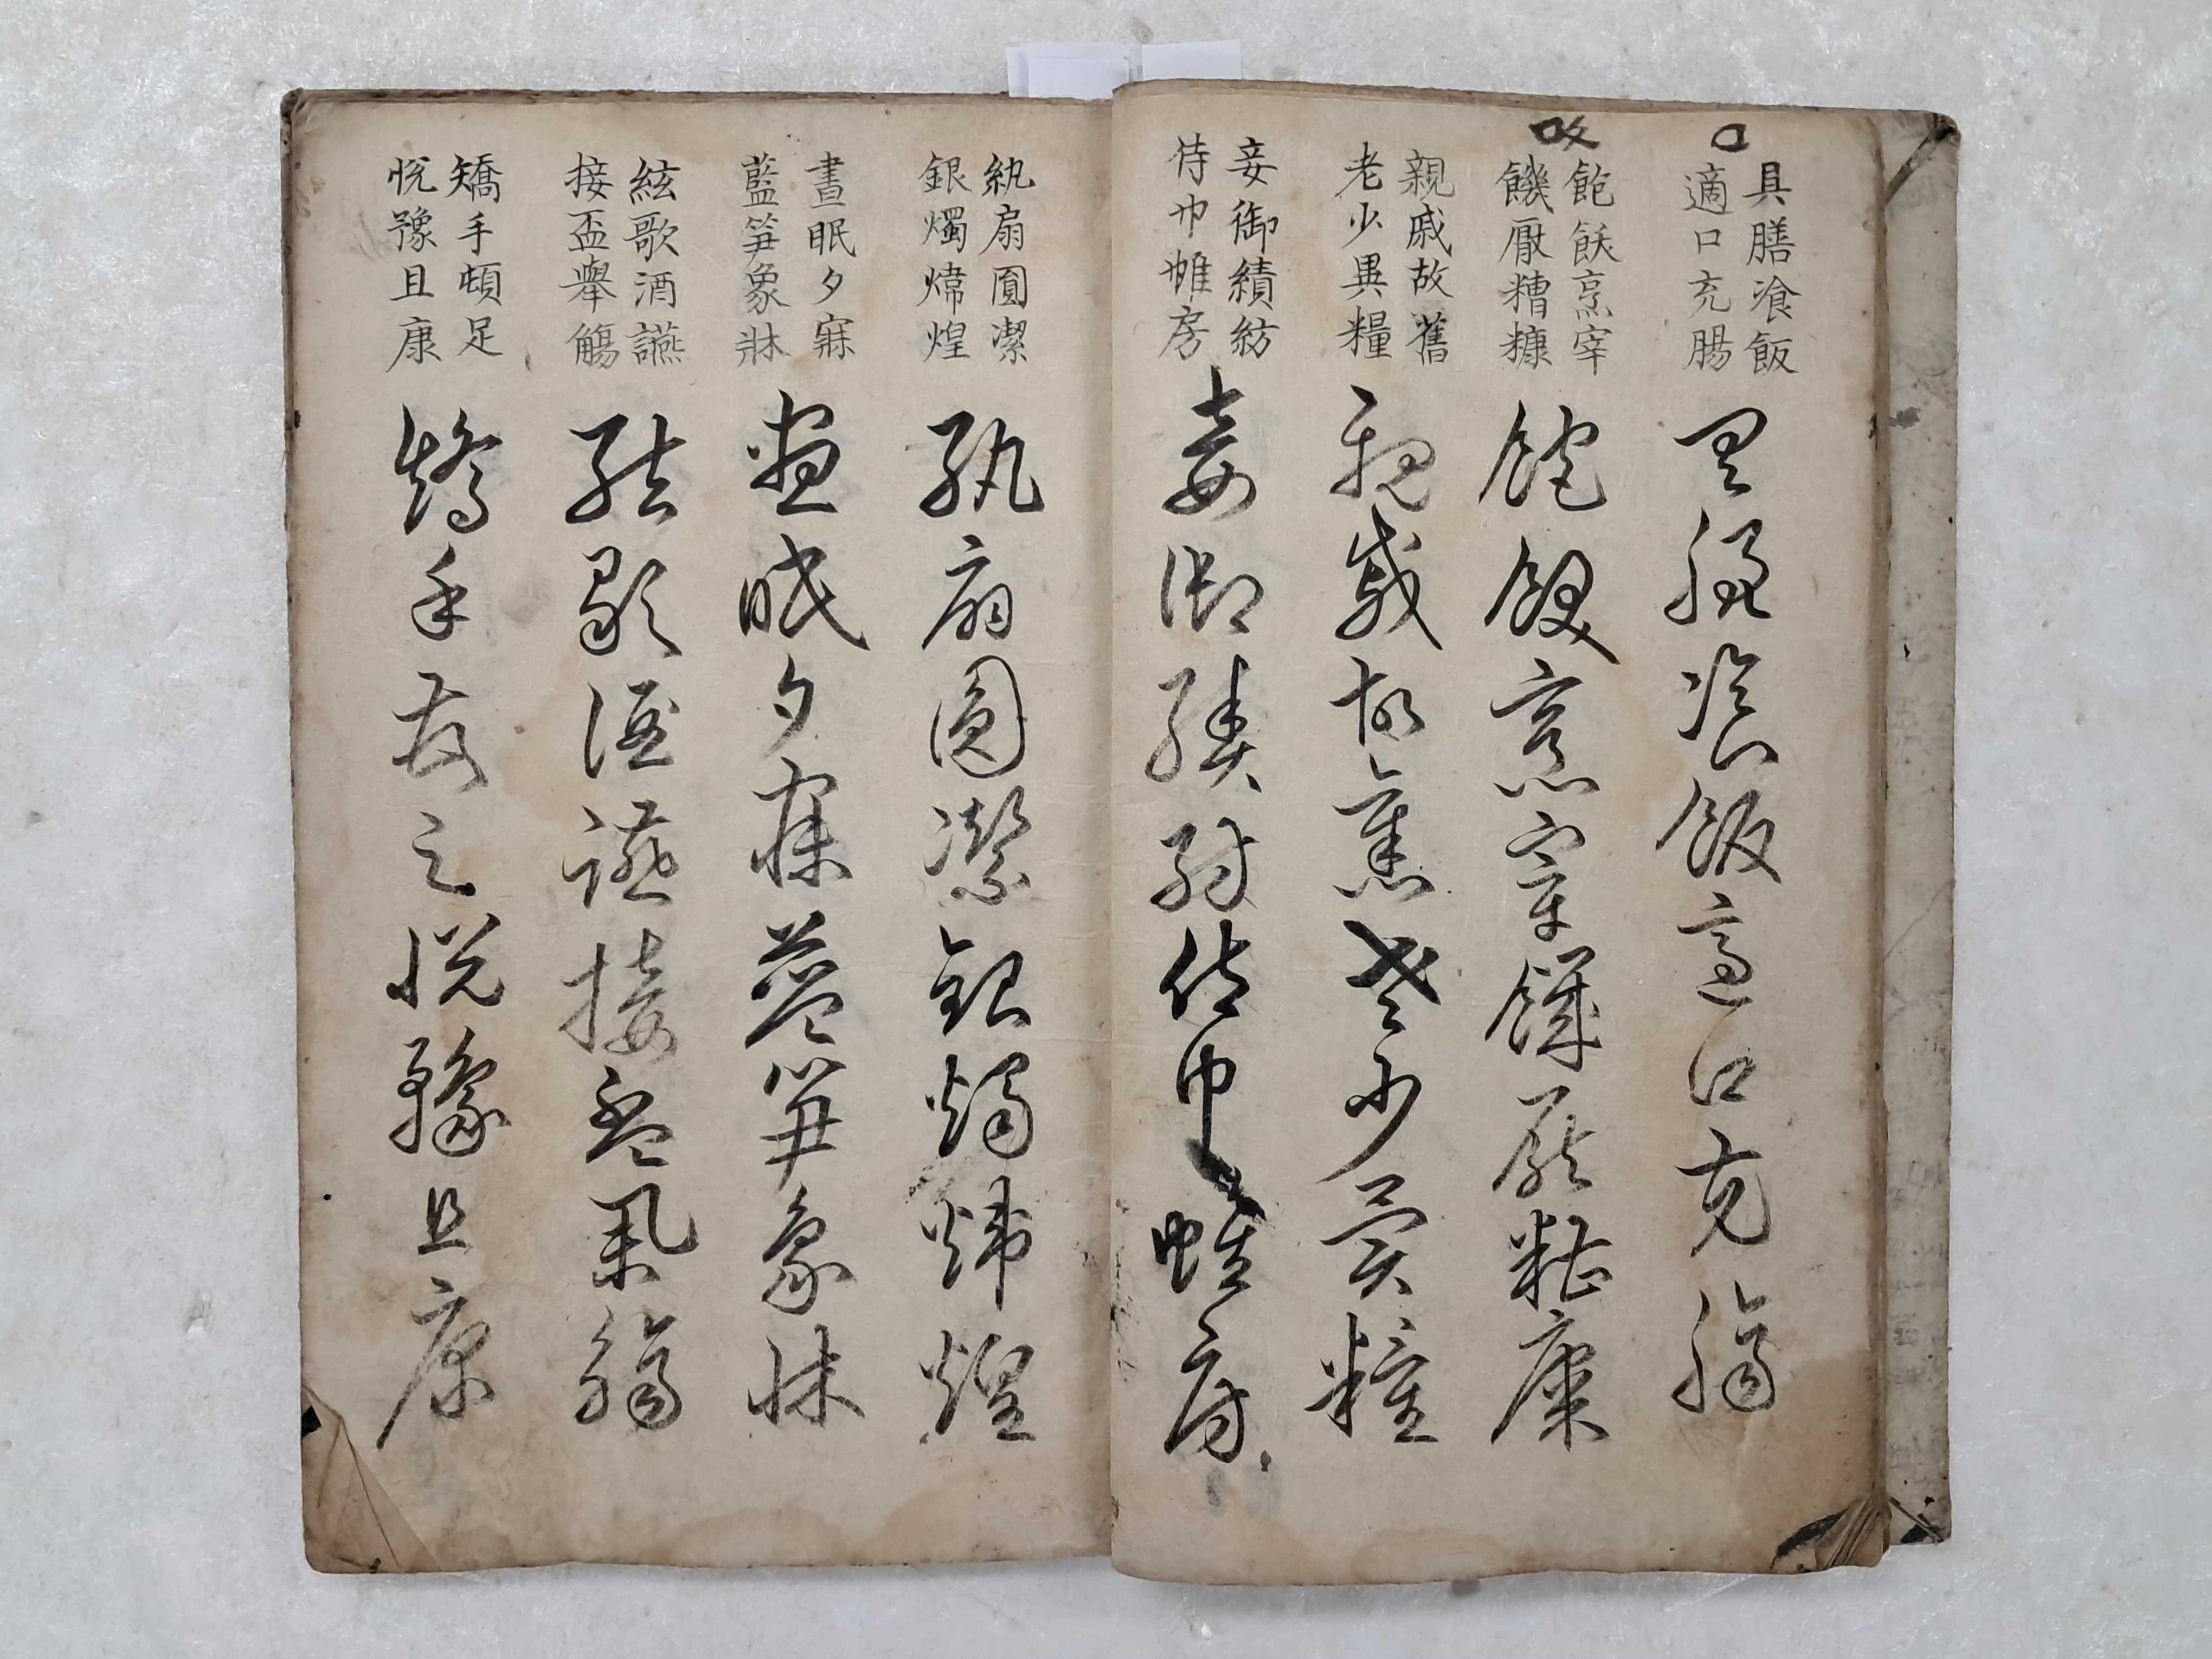 具膳飡飯
適口充腸
具膳飡飯適口充腸
飽飫烹宰
饑厭糟糠
飽飫烹宰饑厭糟糠
親戚故舊
老少異糧
親戚故舊老少異糧
妾御績紡
侍巾帷房
妾御績紡侍巾帷房
紈扇圓潔
銀燭煒煌
紈扇圓潔銀燭煒煌
晝眠夕寐
藍笋象牀
晝眠夕寐藍笋象牀
絃歌酒讌
接盃舉觴
絃歌酒讌接盃舉觴
矯手頓足
悅豫且康
矯手頓足悅豫且康